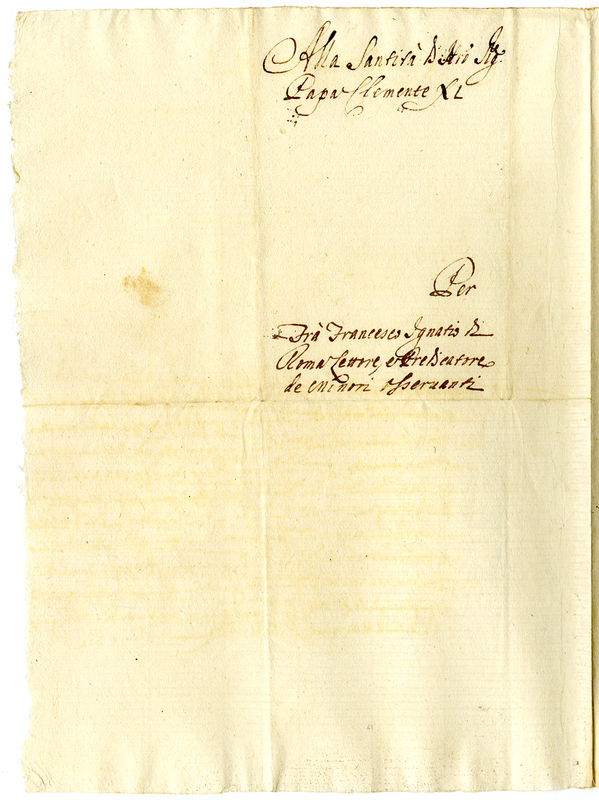 Alla Santità di Nro Sig.
Papa Clemente XI
Per
Frà Francesco Ignatio di
Roma Lettore, e Predicatore
de Minori osseruanti